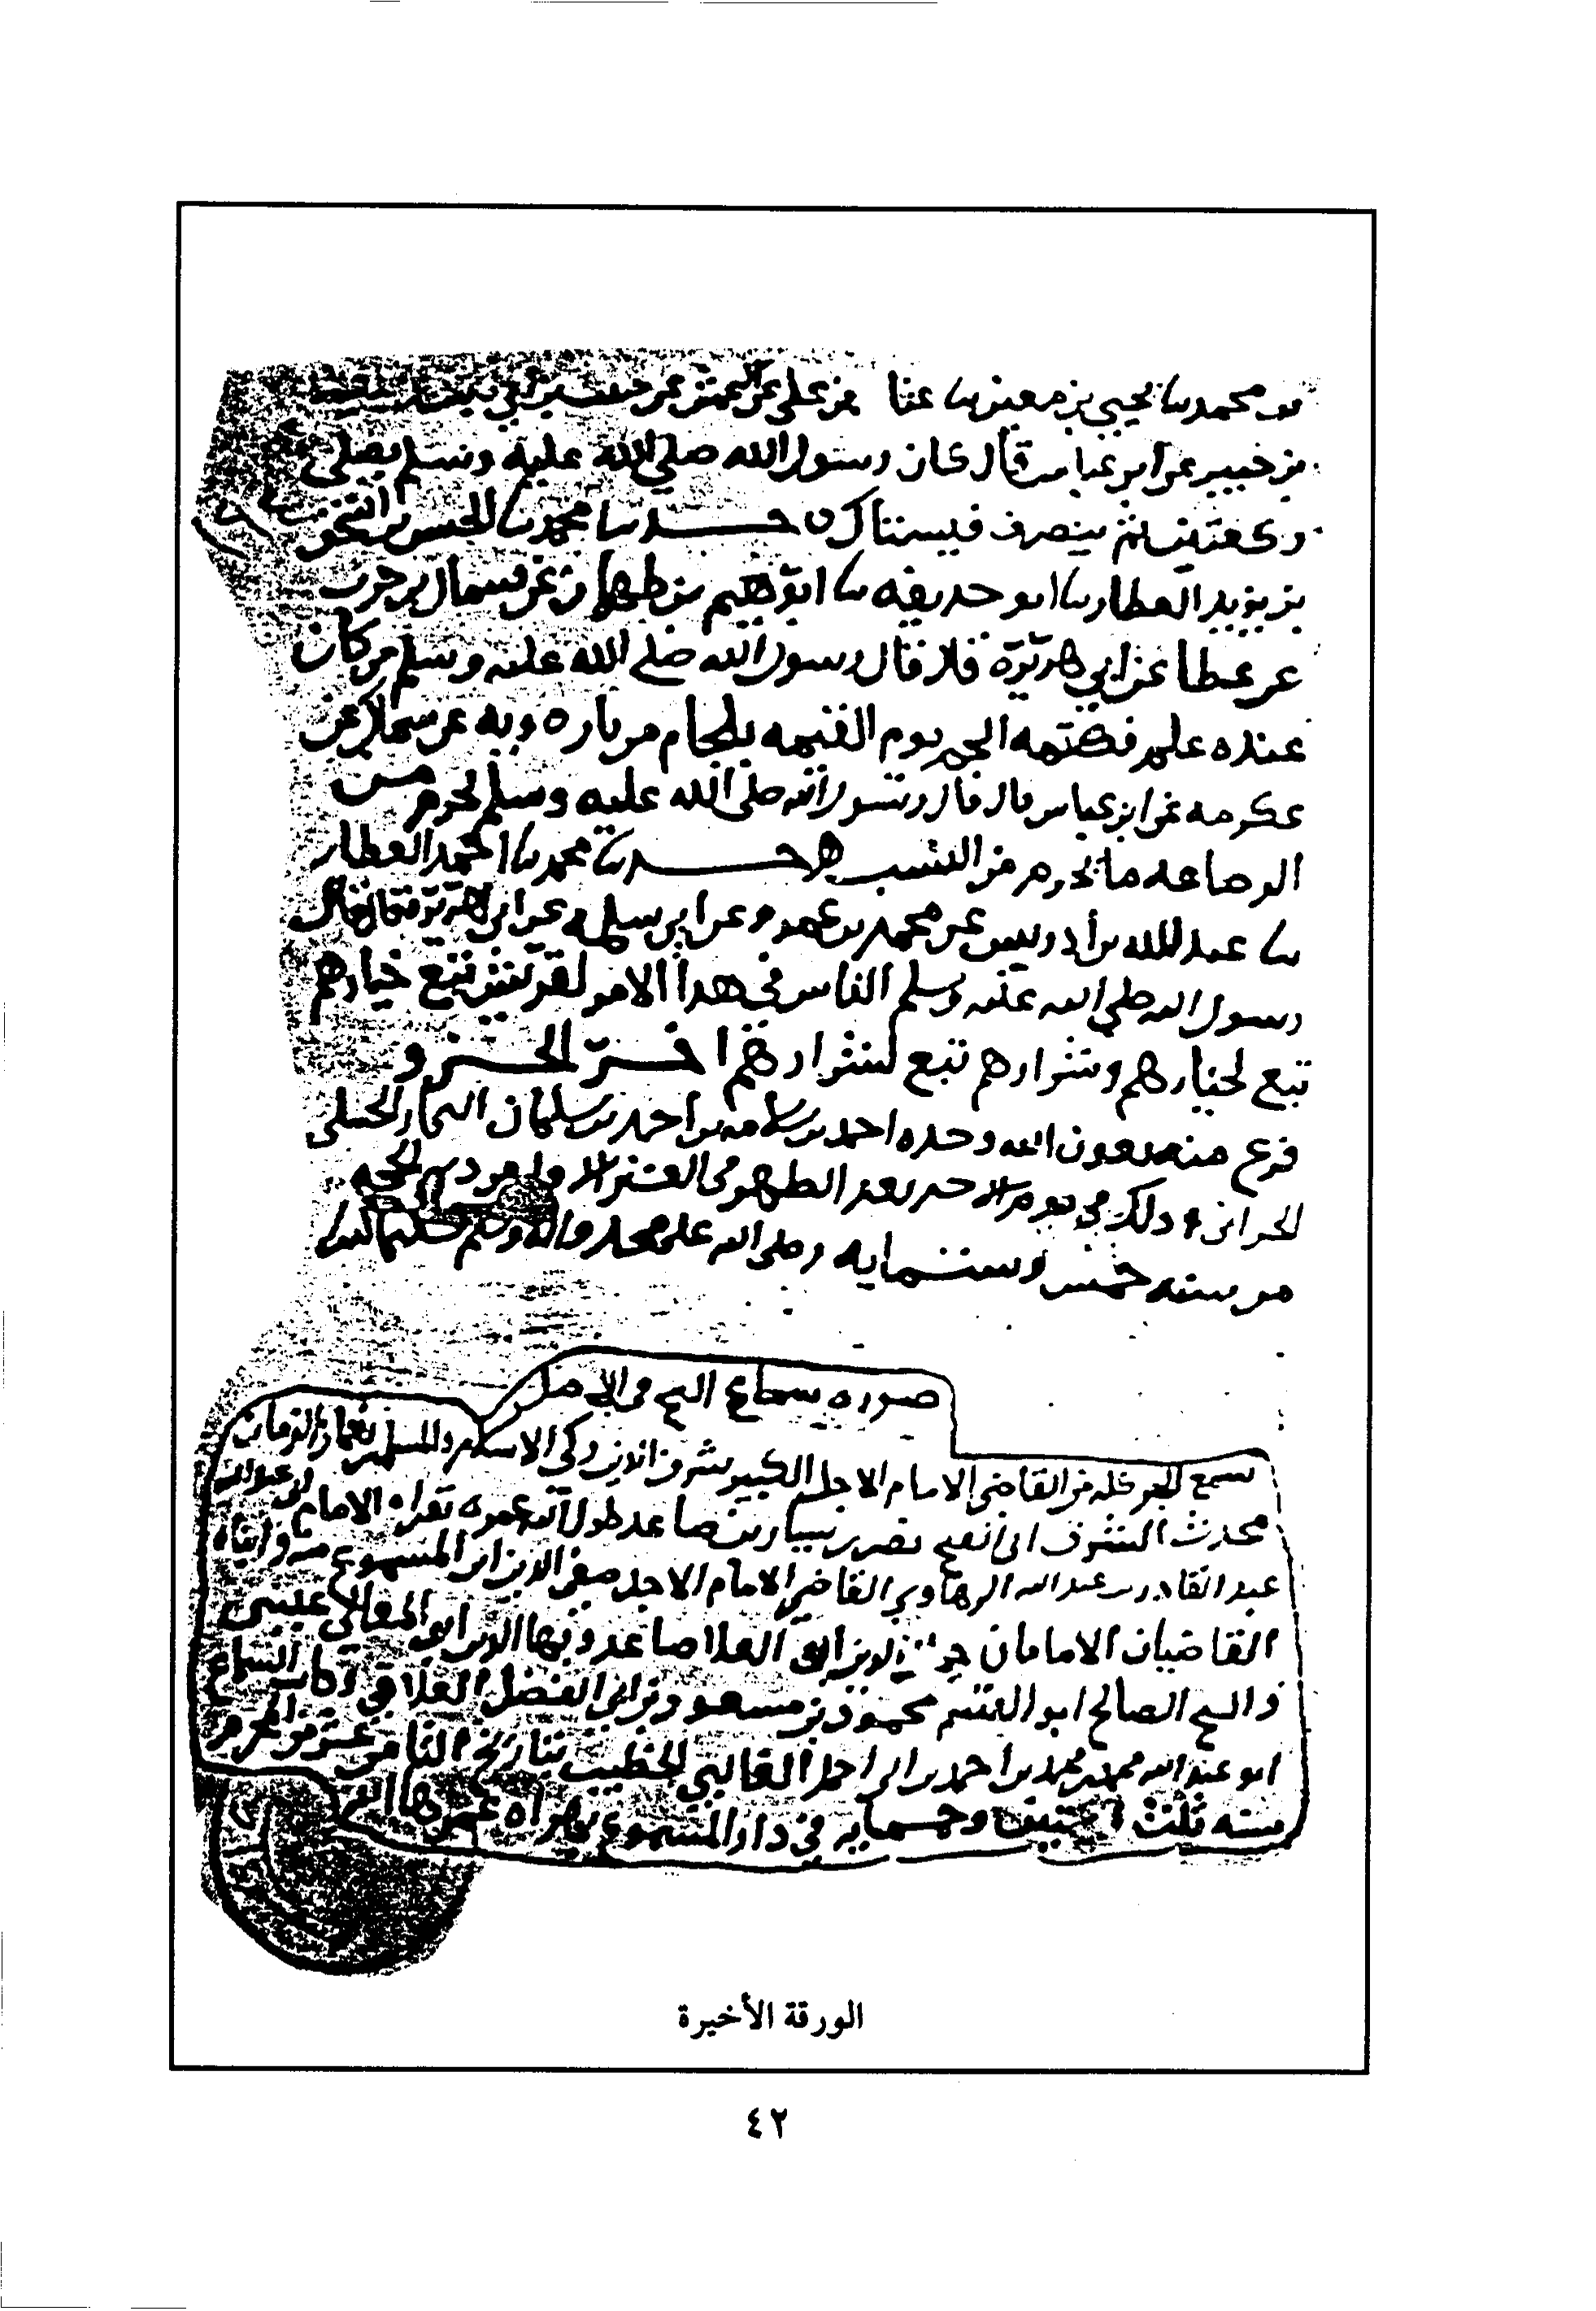 محمد نا يحيى بن معين نا عثا بن علي عن الاعمش عن حبيب بن ابي
بن جبير عن ابن عباس قال كان رسول الله صلى الله عليه وسلم يصلي
ركعتين ثم ينصرف فيستاك حدثنا محمد نا الحسن بن اسحق
بن يزيد العطار نا ابو حديفه نا ابرهيم بن طهمان عن سماك بن حرب
عن عطا عن ابي هريرة قال قال رسول الله صلى الله عليه وسلم من كان
عنده علم فكتمه الجم يوم القيمه بلجام من ناره وبه عن سماك عن
عكرمه عن ابن عباس قال قال رسول الله صلى الله عليه وسلم يحرم من
الرضاعه ما يحرم من النسب ه حدثنا محمد نا العطار
نا عبد الله بن ادريس عن محمد بن عمرو عن ابي سلمه عن ابي هريرة قال قال
رسول الله صلى الله عليه وسلم الناس في هدا الامر لقريش تبع خيارهم
تبع لخيارهم وشرارهم تبع لشرارهم اخر الجزو
فرع منه بعون الله وحده احمد بن سلامه بن احمد بن سلمان النجار الحنبلي
الحراني ودلك في يوم الاحد بعد الظهر في العشر الاول من دي الحجه
من سنه خمس وستمايه وصلى الله على محمد واله وسلم تسليما
صوره سماع الشيخ في الاصل
سمع الجزو كله من القاضي الامام الاجل الكبير شرف الدين زكي الاسلام والمسلمين
محدث الشرف ابي الفتح نصر بن سيار بن صاعد طول الله عمره بقراه الامام
عبد القادر بن عبد الله الرهاوي القاضي الامام الاجل صفي الدين ابن المسموع منه وابناه
القاضيان الامامان الدين ابو العلا صاعد وبها الدين ابو المعالي عيسى
والشيخ الصالح ابو القسم محمود بن مسعود بن ابي الفضل وكاتب السماع
ابو عبد الله محمد بن محمد بن احمد بن الخطيب بتاريخ الثامن عشر من المحرم
سنه ثلث وخمسمايه في دار المسموع بهراه عمرها الله
الورقة الأخيرة
٤٢